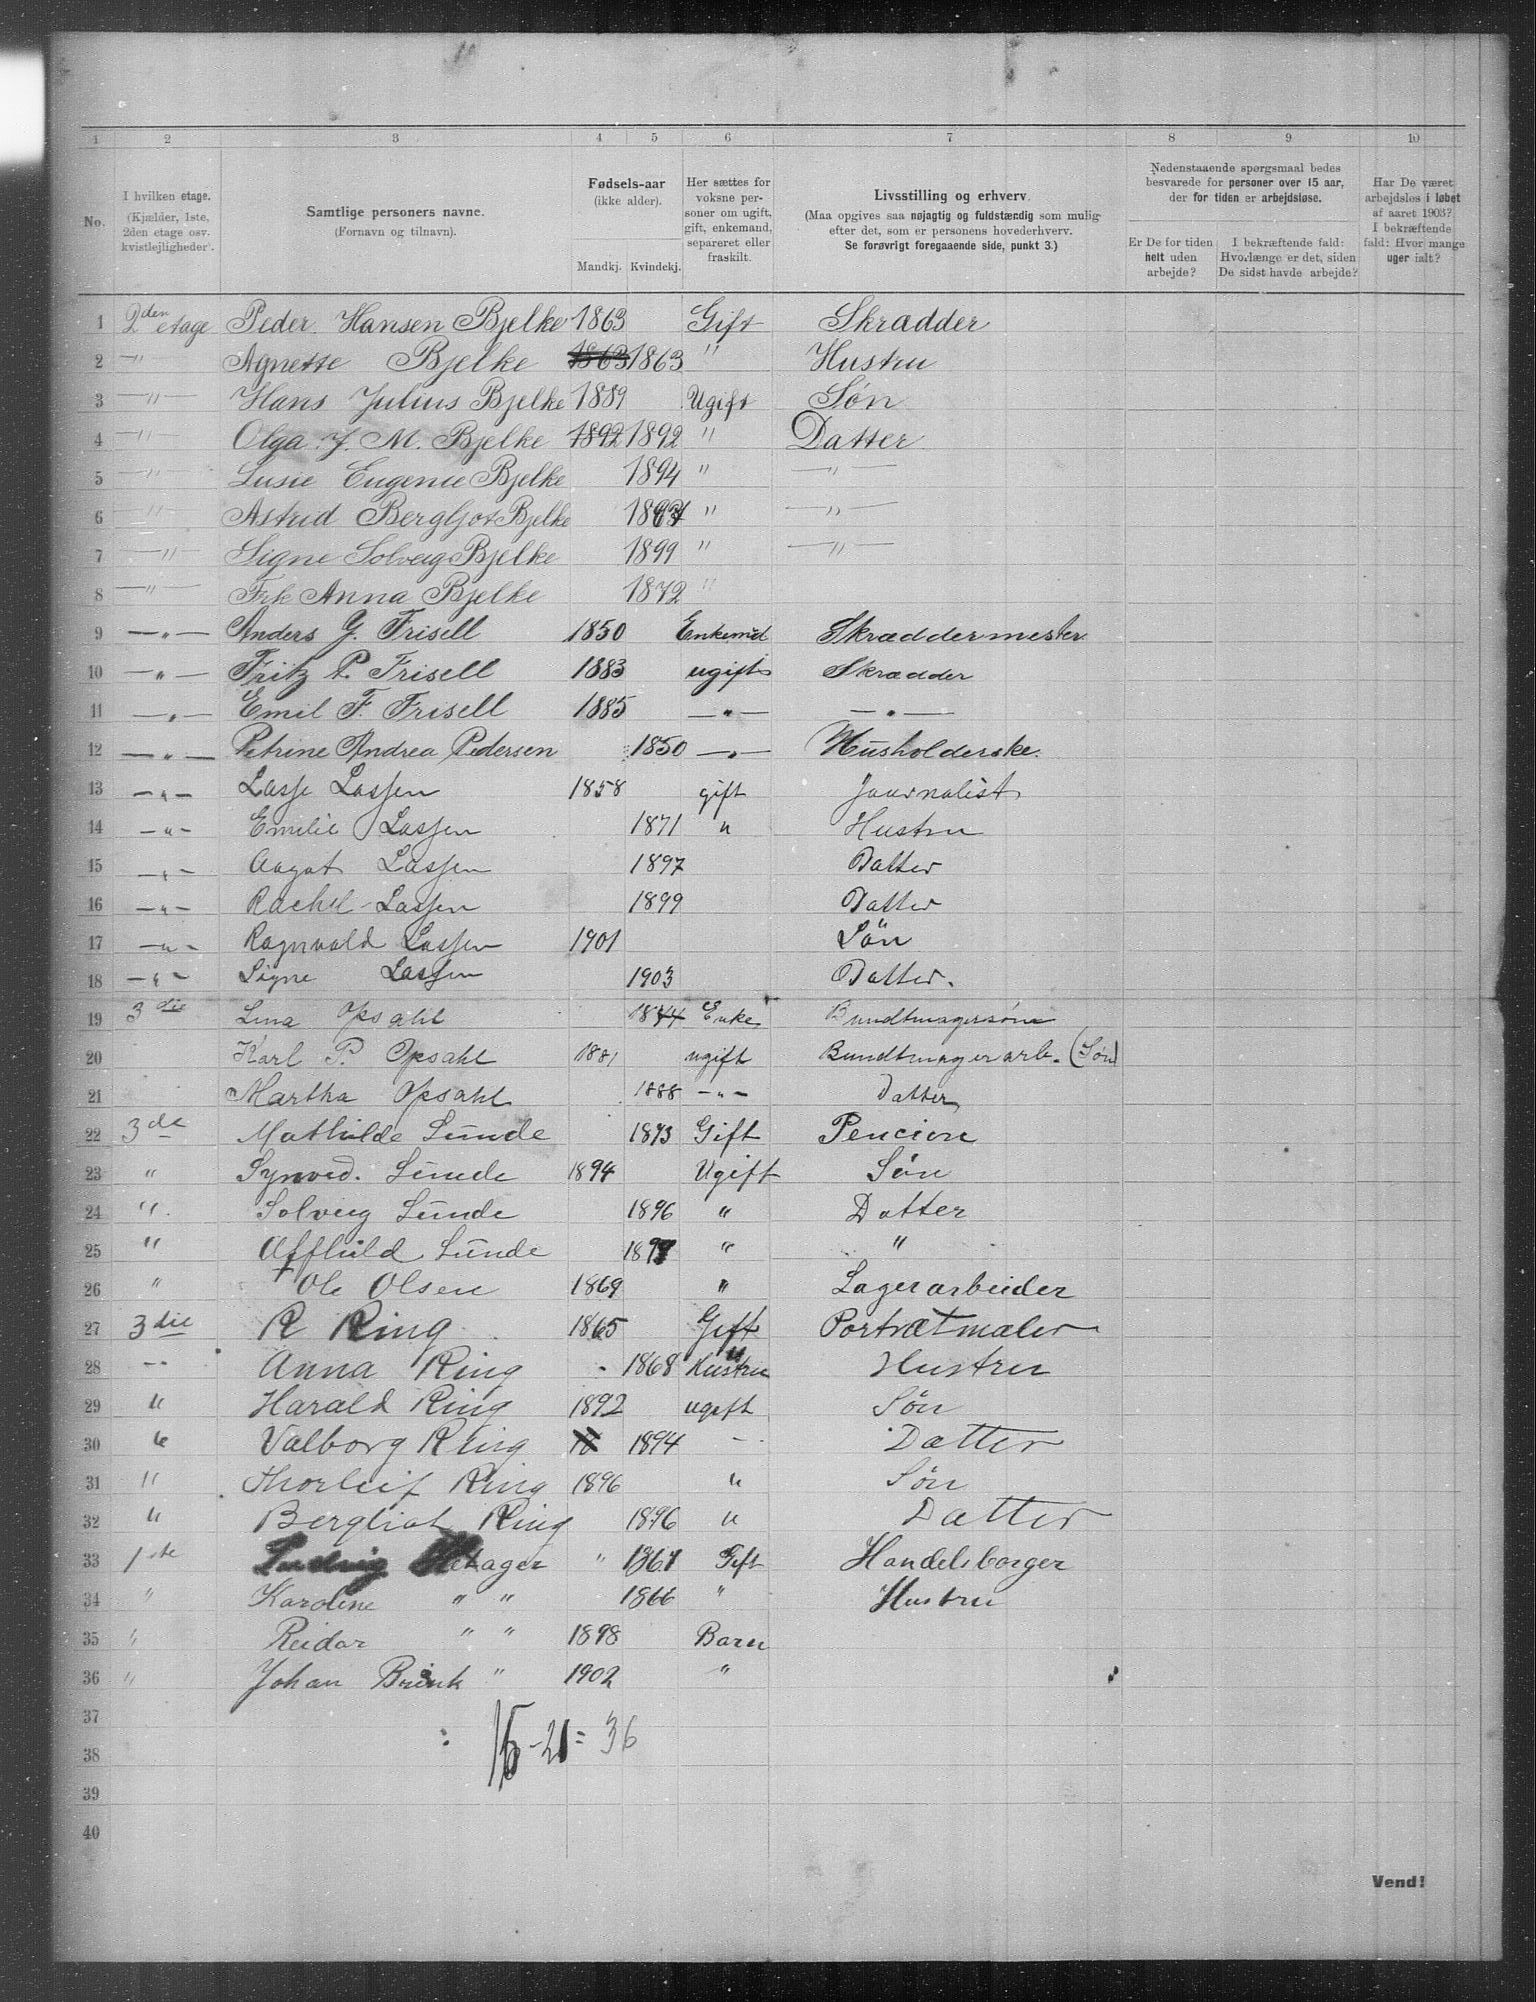 1 2 3 4 5 6 7 8 9 10
No.
I hvilken etage.
(Kjælder, 1ste,
2den etage osv.
kvistlejligheder).
Samtlige personers navne.
(Fornavn og tilnavn).
Fødsels-aar
(ikke alder).
Mandkj. Kvindekj.
Her sættes for
voksne per-
soner om ugift,
gift, enkemand,
separeret eller
fraskilt.
Livsstilling og erhverv.
(Maa opgives saa nøjagtig og fuldstændig som mulig
efter det, som er personens hovederhverv.
Se forøvrigt foregaaende side, punkt 3.)
Nedenstaaende spørgsmaal bedes
besvarede for personer over 15 aar,
der for tiden er arbejdsløse.
Er De for tiden
helt uden
arbejde?
I bekræftende fald:
Hvorlænge er det, siden
De sidst havde arbejde?
Har De været
arbejdsløs i løbet
af aaret 1903?
I bekræftende
fald: Hvor mange
uger ialt?
1 2den etage Peder Hansen Bjelke 1863 Gift Skrædder
2 —"— Agnette Bjelke 1863 1863 " Hustru
3 —"— Hans Julius Bjelke 1889 Ugift Søn
4 —"— Olga J. M. Bjelke 1892 1892 " Datter
5 —"— Lusie Eugenie Bjelke 1894 " —"—
6 —"— Astrid Bergljot Bjelke " —"—
7 —"— Signe Solveig Bjelke 1899 " —"—
8 —"— Frk Anna Bjelke 1872 "
9 —"— Anders G. Frisell 1850 Enkemd Skræddermester
10 —"— Fritz P. Frisell 1883 ugift Skrædder
11 —"— Emil F. Frisell 1885 —"— —"—
12 —"— Petrine Andrea Pedersen 1850 —"— Husholderske.
13 —"— Lasse Lassen 1858 gift Journalist
14 —"— Emilie Lassen 1871 " Hustru
15 —"— Aagot Lassen 1897 Datter
16 —"— Rachel Lassen 1899 Datter
17 —"— Ragnvald Lassen 1901 Søn
18 —"— Signe Lassen 1903 Datter.
19 3die Lina Opsahl 1844 Enke
20 Karl P. Opsahl 1881 ugift Bundtmagerarb. (Søn)
21 Martha Opsahl 1888 —"— Datter
22 3de Mathilde Lunde 1873 Gift Pencion
23 " Synved. Lunde 1894 Ugift Søn
24 " Solveig Lunde 1896 " Datter
25 " Lunde " "
26 " Ole Olsen 1869 " Lagerarbeider
27 3die R Ring 1865 Gift Portrætmaler
28 — Anna Ring 1868 Hustru " Hustru
29 " Harald Ring 1892 ugift Søn
30 " Valborg Ring 1894 — Datter
31 " Thorleif Ring 1896 " Søn
32 " Bergliot Ring 1896 " Datter
33 1ste Ludvig " 1867 Gift Handelsborger
34 " Karoline " " 1866 " Hustru
35 " Reidar " " 1898 Barn
36 " Johan Brink " 1902 "
37
38
39
40
15-21= 36
Vend!